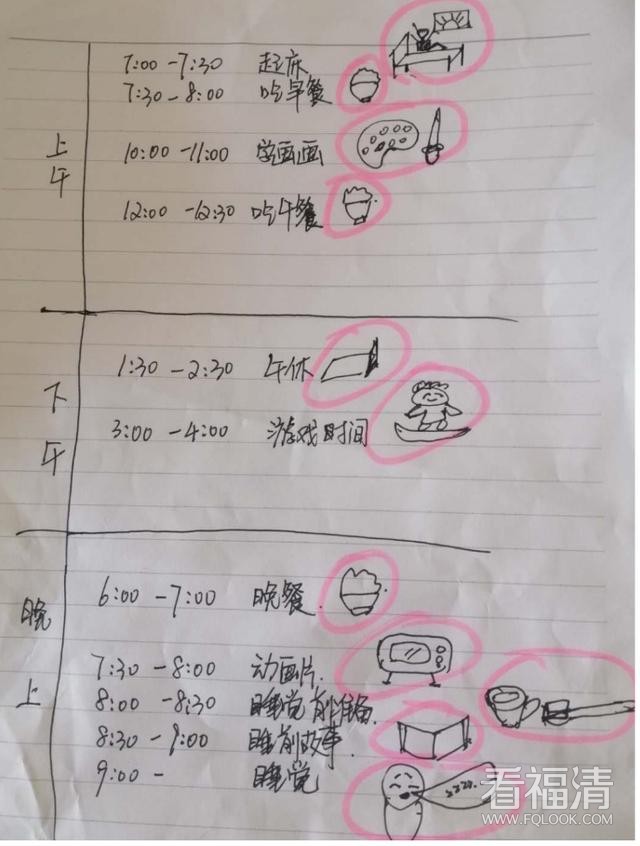 上午
7:00 - 7:30 起床
7:30 - 8:00 吃早餐
10:00 - 11:00 学画画
12:00 - 12:30 吃午餐
下午
1:30 - 2:30 午休
3:00 - 4:00 游戏时间
晚上
6:00 - 7:00 晚餐.
7:30 - 8:00 动画片.
8:00 - 8:30 睡觉前准备.
8:30 - 9:00 睡前故事.
9:00 - 睡觉
看福清
WWW.FQLOOK.COM